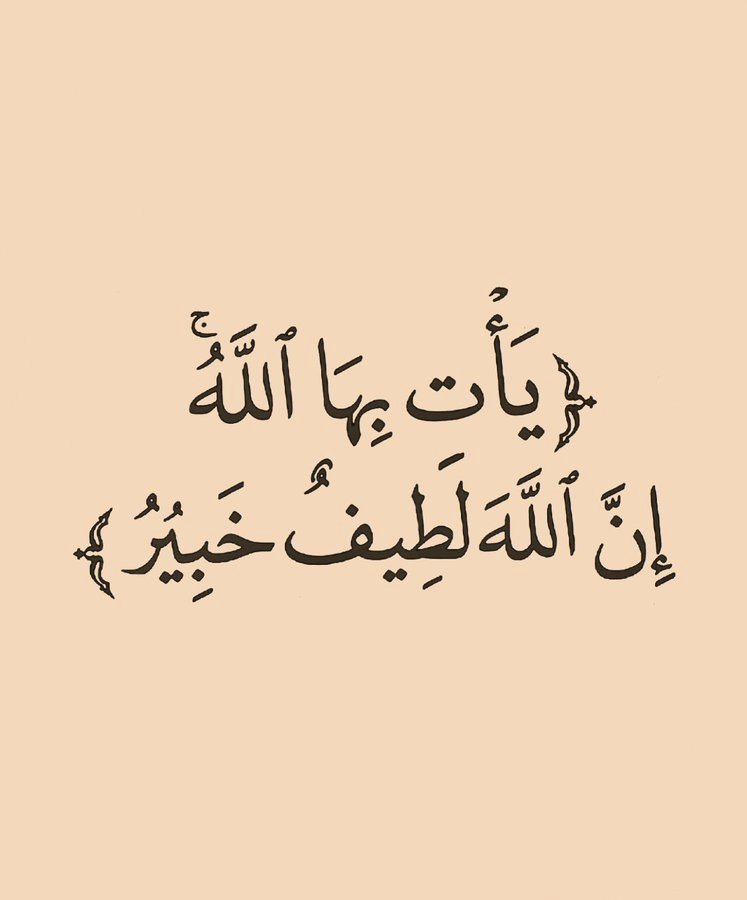 ﴿يَأْتِ بِهَا ٱللَّهُ ۚ
إِنَّ ٱللَّهَ لَطِيفٌ خَبِيُرُ﴾